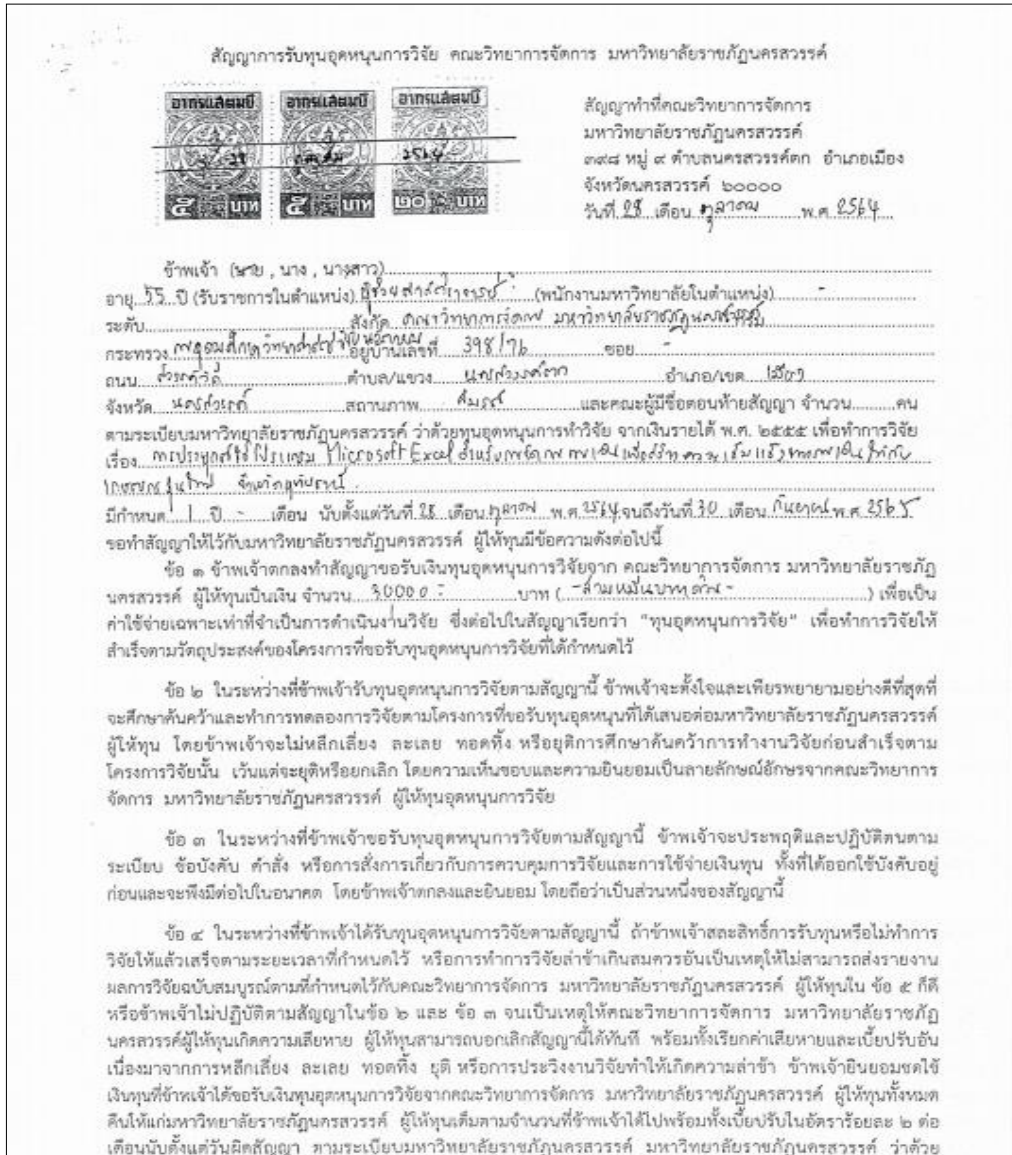 สัญญาการรับทุนอุดหนุนการวิจัย คณะวิทยาการจัดการ มหาวิทยาลัยราชภัฏนครสวรรค์
อากรแสตมป์ อากรแสตมป์ อากรแสตมป์
28 ตุลาคม 2564
๕ บาท ๕ บาท ๒๐ บาท
สัญญาทำที่คณะวิทยาการจัดการ
มหาวิทยาลัยราชภัฏนครสวรรค์
๓๙๘ หมู่ ๙ ตำบลนครสวรรค์ตก อำเภอเมือง
จังหวัดนครสวรรค์ ๖๐๐๐๐
วันที่ 28 เดือน ตุลาคม พ.ศ. 2564
ข้าพเจ้า (นาย , นาง , นางสาว)
อายุ 55 ปี (รับราชการในตำแหน่ง) ผู้ช่วยศาสตราจารย์ (พนักงานมหาวิทยาลัยในตำแหน่ง) -
ระดับ สังกัด คณะวิทยาการจัดการ มหาวิทยาลัยราชภัฏนครสวรรค์
กระทรวง การอุดมศึกษาวิทยาศาสตร์ อยู่บ้านเลขที่ 398/76 ซอย -
ถนน สวรรค์วิถี ตำบล/แขวง นครสวรรค์ตก อำเภอ/เขต เมือง
จังหวัด นครสวรรค์ สถานภาพ สมรส และคณะผู้มีชื่อตอนท้ายสัญญา จำนวน คน
ตามระเบียบมหาวิทยาลัยราชภัฏนครสวรรค์ ว่าด้วยทุนอุดหนุนการทำวิจัย จากเงินรายได้ พ.ศ. ๒๕๕๕ เพื่อทำการวิจัย
เรื่อง การประยุกต์ใช้โปรแกรม Microsoft Excel สำหรับการจัดการการเงินเพื่อสร้างความเข้มแข็งทางการเงินให้กับ
เกษตรกรรุ่นใหม่ จังหวัดอุทัยธานี
มีกำหนด 1 ปี - เดือน นับตั้งแต่วันที่ 28 เดือน ตุลาคม พ.ศ. 2564 จนถึงวันที่ 30 เดือน กันยายน พ.ศ. 2565
ขอทำสัญญาให้ไว้กับมหาวิทยาลัยราชภัฏนครสวรรค์ ผู้ให้ทุนมีข้อความดังต่อไปนี้
ข้อ ๑ ข้าพเจ้าตกลงทำสัญญาขอรับเงินทุนอุดหนุนการวิจัยจาก คณะวิทยาการจัดการ มหาวิทยาลัยราชภัฏ
นครสวรรค์ ผู้ให้ทุนเป็นเงิน จำนวน 30000 - บาท ( -สามหมื่นบาทถ้วน- ) เพื่อเป็น
ค่าใช้จ่ายเฉพาะเท่าที่จำเป็นการดำเนินงานวิจัย ซึ่งต่อไปในสัญญาเรียกว่า "ทุนอุดหนุนการวิจัย" เพื่อทำการวิจัยให้
สำเร็จตามวัตถุประสงค์ของโครงการที่ขอรับทุนอุดหนุนการวิจัยที่ได้กำหนดไว้
ข้อ ๒ ในระหว่างที่ข้าพเจ้ารับทุนอุดหนุนการวิจัยตามสัญญานี้ ข้าพเจ้าจะตั้งใจและเพียรพยายามอย่างดีที่สุดที่
จะศึกษาค้นคว้าและทำการทดลองการวิจัยตามโครงการที่ขอรับทุนอุดหนุนที่ได้เสนอต่อมหาวิทยาลัยราชภัฏนครสวรรค์
ผู้ให้ทุน โดยข้าพเจ้าจะไม่หลีกเลี่ยง ละเลย ทอดทิ้ง หรือยุติการศึกษาค้นคว้าการทำงานวิจัยก่อนสำเร็จตาม
โครงการวิจัยนั้น เว้นแต่จะยุติหรือยกเลิก โดยความเห็นชอบและความยินยอมเป็นลายลักษณ์อักษรจากคณะวิทยาการ
จัดการ มหาวิทยาลัยราชภัฏนครสวรรค์ ผู้ให้ทุนอุดหนุนการวิจัย
ข้อ ๓ ในระหว่างที่ข้าพเจ้าขอรับทุนอุดหนุนการวิจัยตามสัญญานี้ ข้าพเจ้าจะประพฤติและปฏิบัติตนตาม
ระเบียบ ข้อบังคับ คำสั่ง หรือการสั่งการเกี่ยวกับการควบคุมการวิจัยและการใช้จ่ายเงินทุน ทั้งที่ได้ออกใช้บังคับอยู่
ก่อนและจะพึงมีต่อไปในอนาคต โดยข้าพเจ้าตกลงและยินยอม โดยถือว่าเป็นส่วนหนึ่งของสัญญานี้
ข้อ ๔ ในระหว่างที่ข้าพเจ้าได้รับทุนอุดหนุนการวิจัยตามสัญญานี้ ถ้าข้าพเจ้าสละสิทธิ์การรับทุนหรือไม่ทำการ
วิจัยให้แล้วเสร็จตามระยะเวลาที่กำหนดไว้ หรือการทำการวิจัยล่าช้าเกินสมควรอันเป็นเหตุให้ไม่สามารถส่งรายงาน
ผลการวิจัยฉบับสมบูรณ์ตามที่กำหนดไว้กับคณะวิทยาการจัดการ มหาวิทยาลัยราชภัฏนครสวรรค์ ผู้ให้ทุนใน ข้อ ๕ ก็ดี
หรือข้าพเจ้าไม่ปฏิบัติตามสัญญาในข้อ ๒ และ ข้อ ๓ จนเป็นเหตุให้คณะวิทยาการจัดการ มหาวิทยาลัยราชภัฏ
นครสวรรค์ผู้ให้ทุนเกิดความเสียหาย ผู้ให้ทุนสามารถบอกเลิกสัญญานี้ได้ทันที พร้อมทั้งเรียกค่าเสียหายและเบี้ยปรับอัน
เนื่องมาจากการหลีกเลี่ยง ละเลย ทอดทิ้ง ยุติ หรือการประวิงงานวิจัยทำให้เกิดความล่าช้า ข้าพเจ้ายินยอมชดใช้
เงินทุนที่ข้าพเจ้าได้ขอรับเงินทุนอุดหนุนการวิจัยจากคณะวิทยาการจัดการ มหาวิทยาลัยราชภัฏนครสวรรค์ ผู้ให้ทุนทั้งหมด
คืนให้แก่มหาวิทยาลัยราชภัฏนครสวรรค์ ผู้ให้ทุนเต็มตามจำนวนที่ข้าพเจ้าได้ไปพร้อมทั้งเบี้ยปรับในอัตราร้อยละ ๒ ต่อ
เดือนนับตั้งแต่วันผิดสัญญา ตามระเบียบมหาวิทยาลัยราชภัฏนครสวรรค์ มหาวิทยาลัยราชภัฏนครสวรรค์ ว่าด้วย